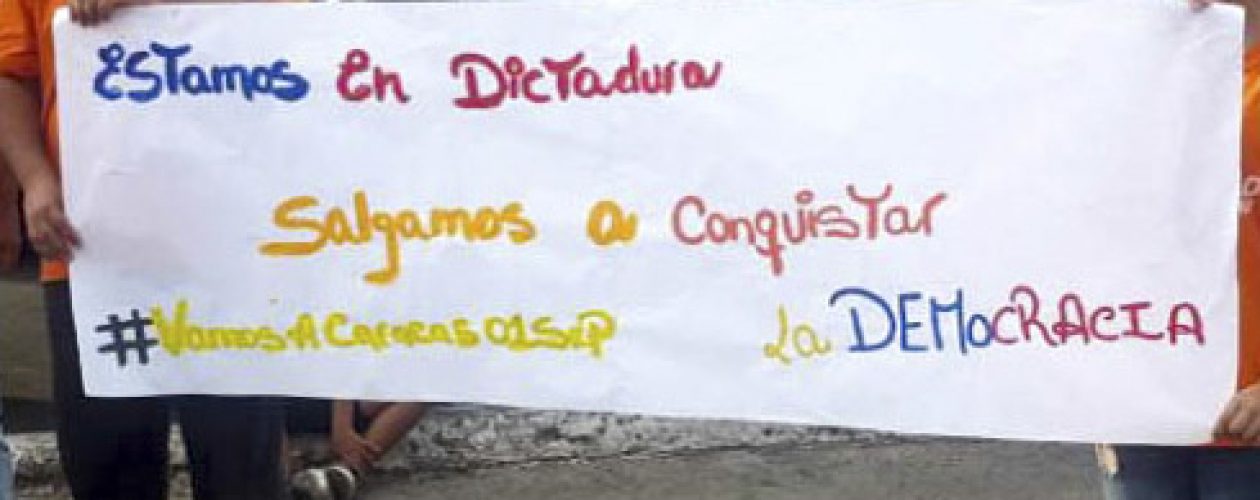 ESTamos En DicTadura
Salgamos a ConquisTar
#VamosACaracas01Sep La DEMoCRAcIA